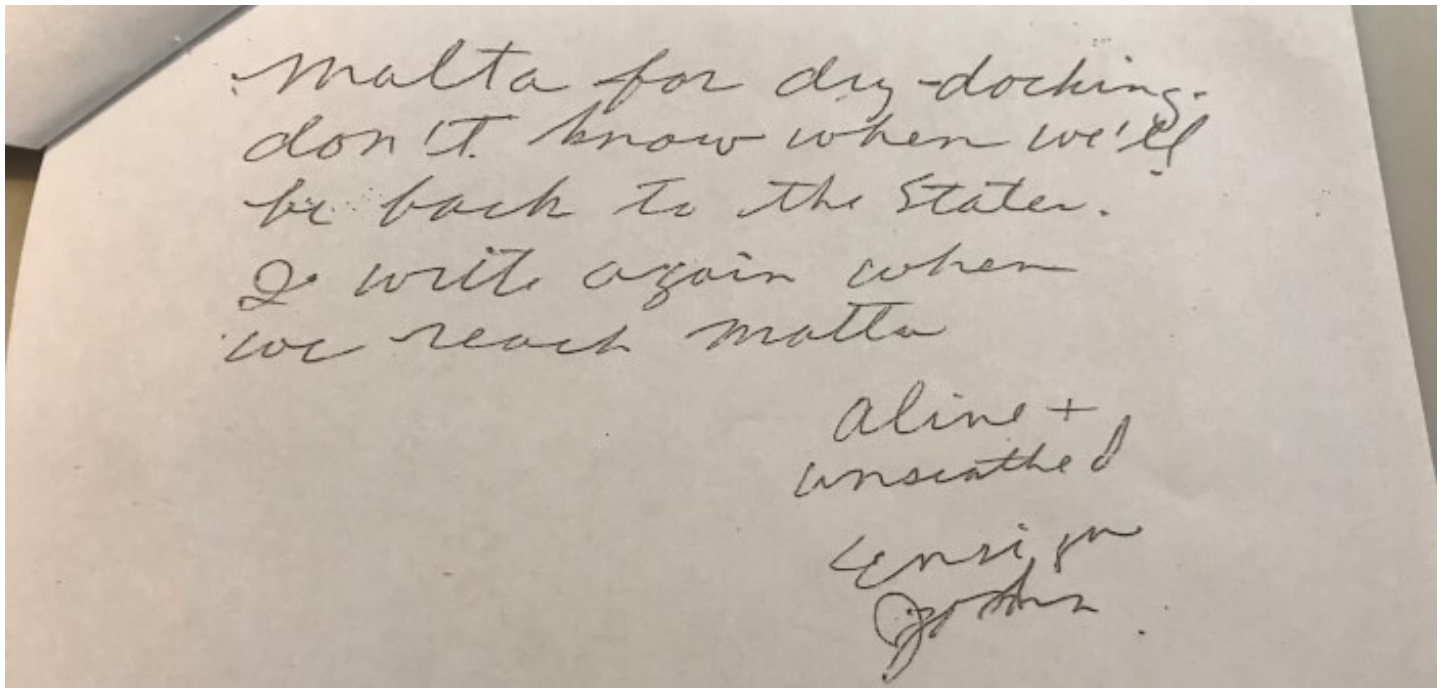 Malta for dry-docking.
don't know when we'll
be back to the States.
I write again when
we reach Malta
alive +
unscathed
Ensign
John